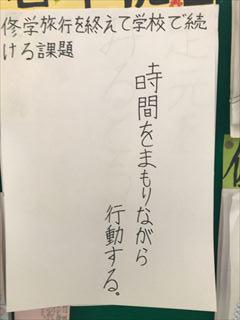 修学旅行を終えて学校で続
ける課題
時間をまもりながら
行動する。